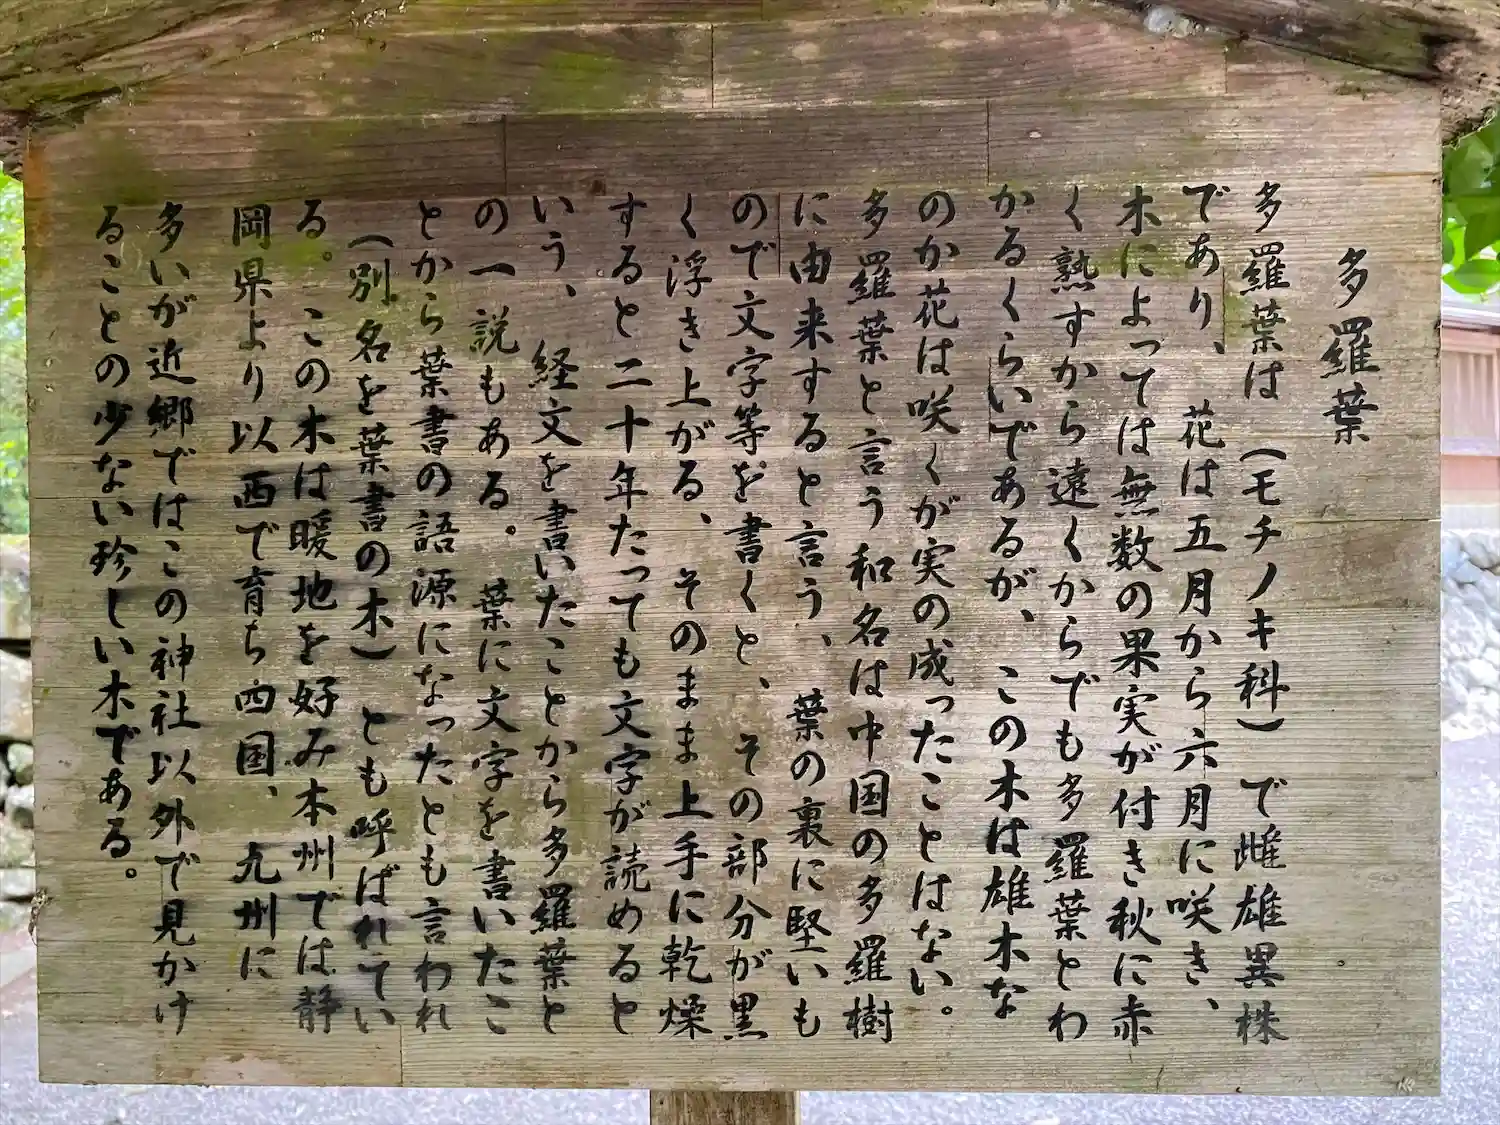 多羅葉
多羅葉は(モチノキ科)で雌雄異株
であり、花は五月から六月に咲き、
木によっては無数の果実が付き秋に赤
く熟すから遠くからでも多羅葉とわ
かるくらいであるが、この木は雄木な
のか花は咲くが実の成ったことはない。
多羅葉と言う和名は中国の多羅樹
に由来すると言う、葉の裏に堅いも
ので文字等を書くと、その部分が黒
く浮き上がる、そのまま上手に乾燥
すると二十年たっても文字が読めると
いう、経文を書いたことから多羅葉と
の一説もある。葉に文字を書いたこ
とから葉書の語源になったとも言われ
(別名を葉書の木)とも呼ばれてい
る。この木は暖地を好み本州では静
岡県より以西で育ち四国、九州に
多いが近郷ではこの神社以外で見かけ
ることの少ない珍しい木である。